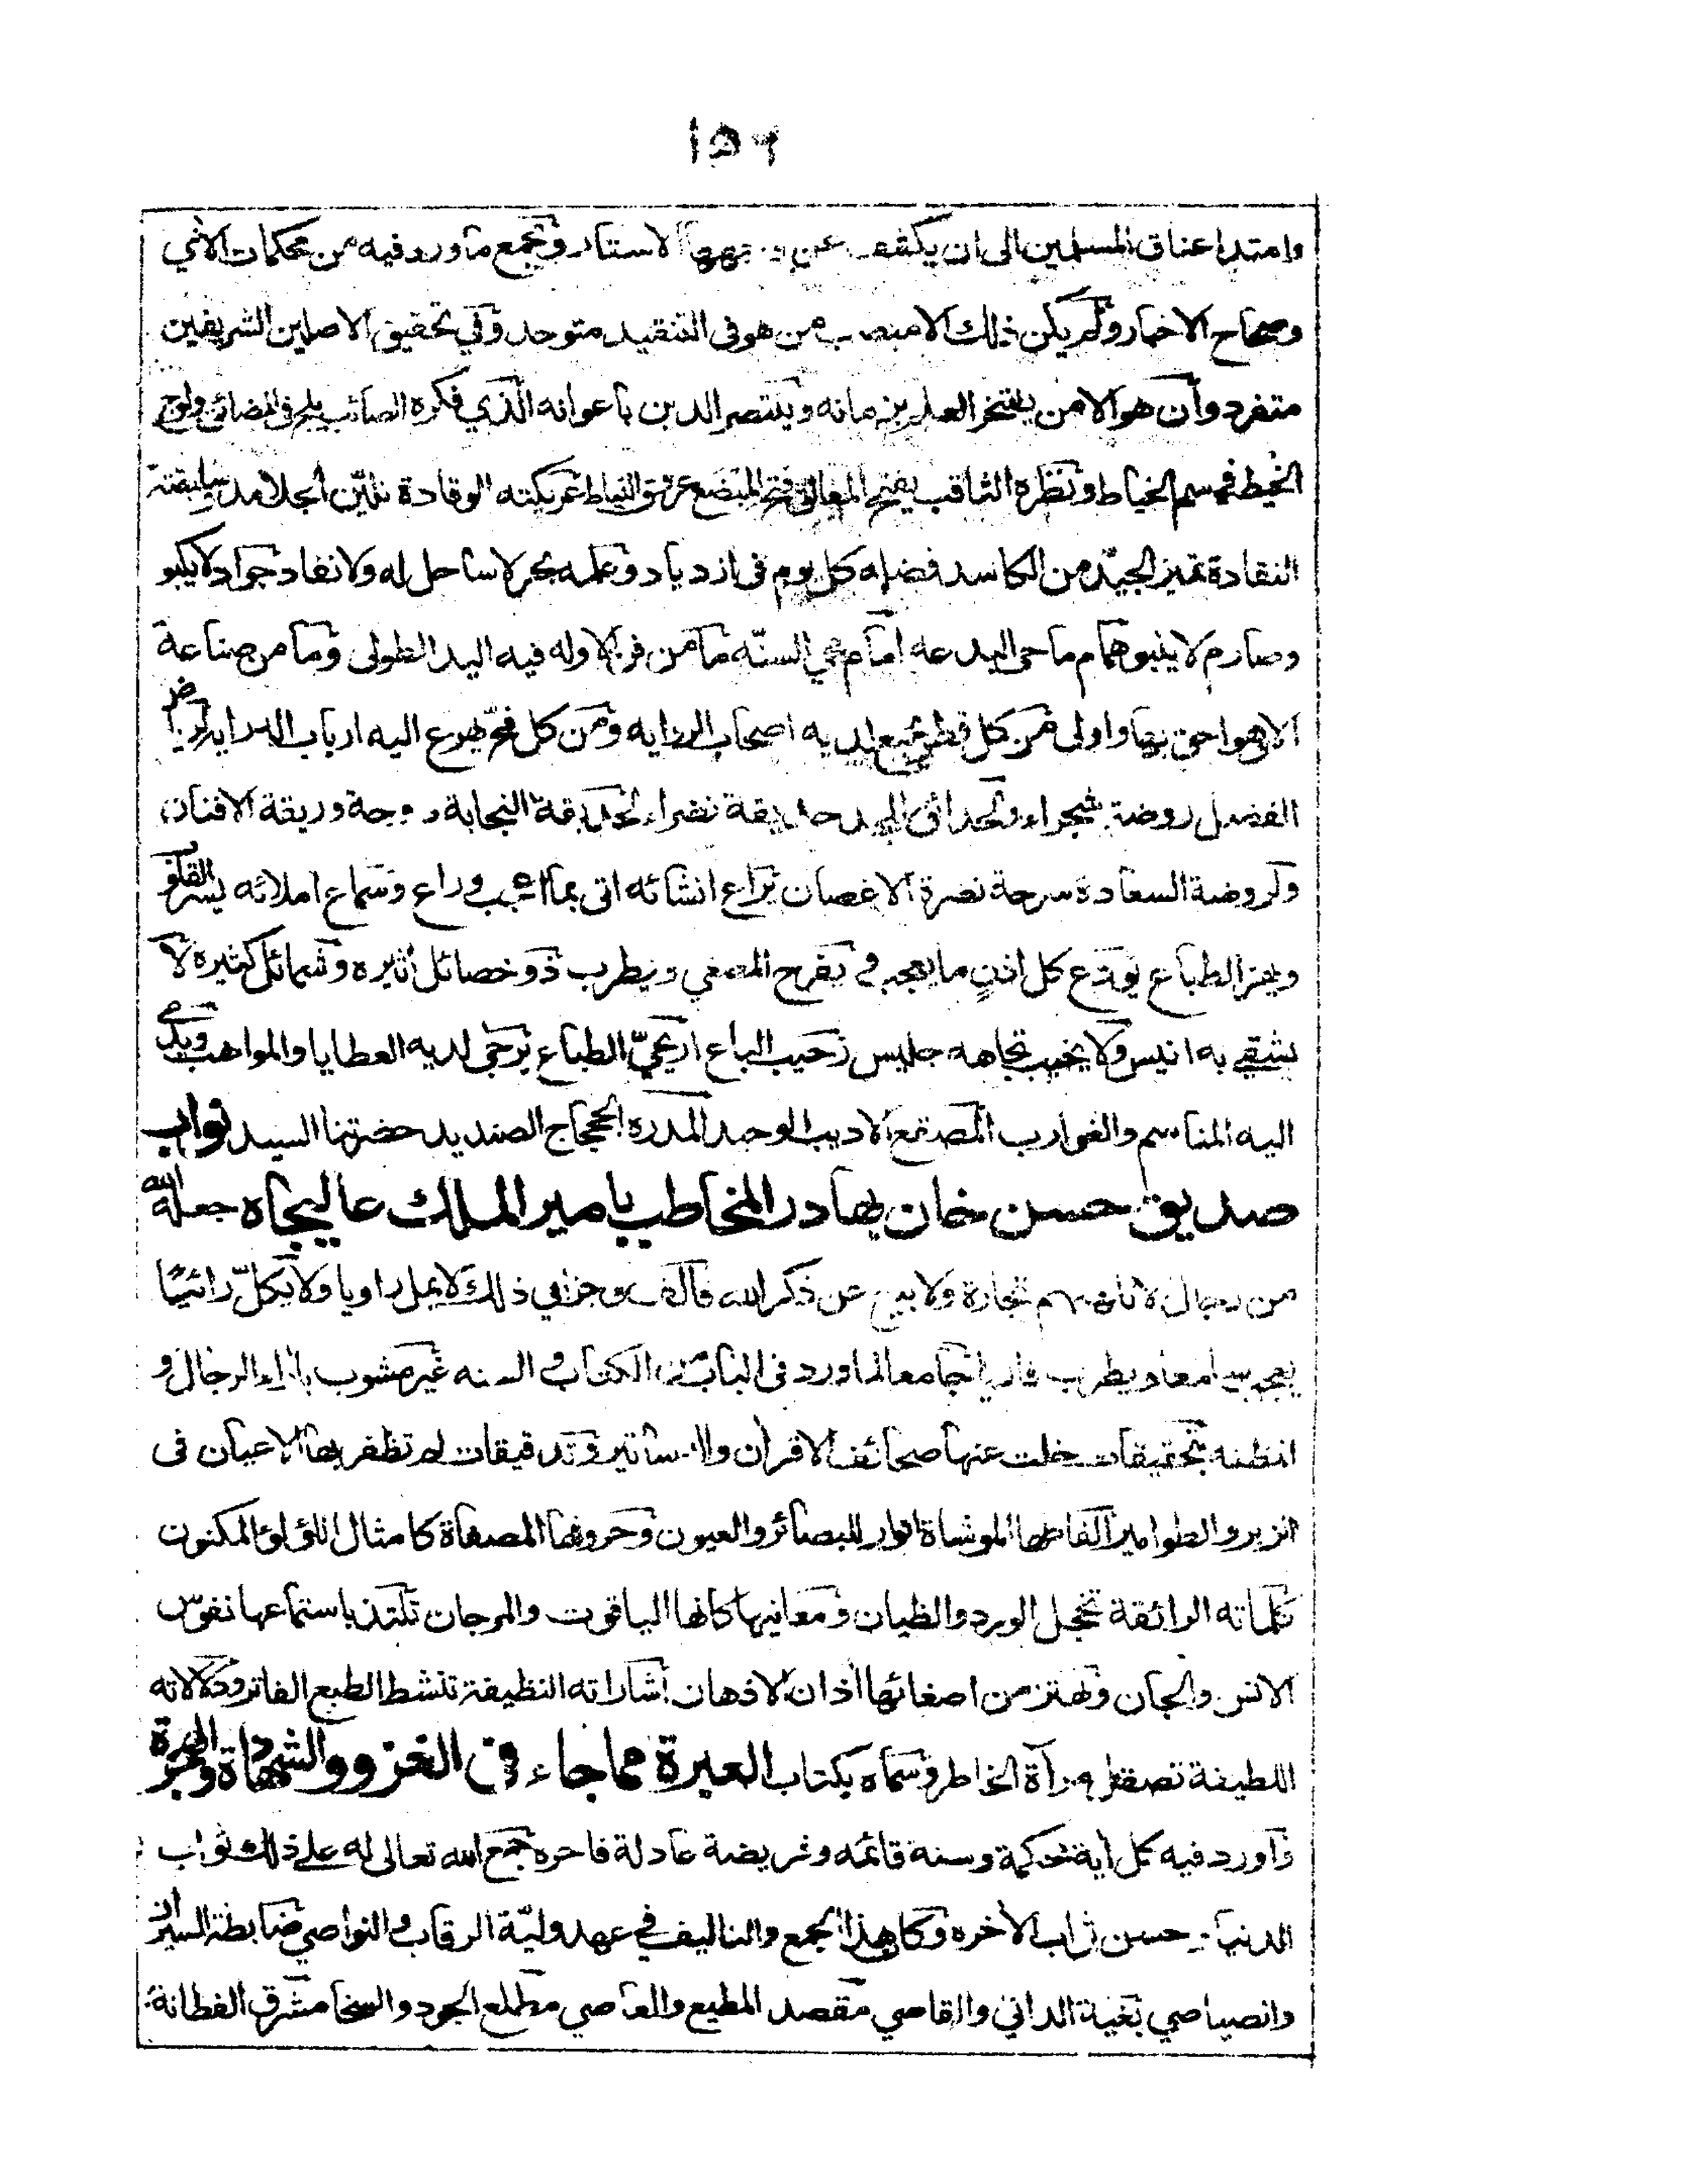 ١٥٦
وامتد اعناق المسلمين الى ان يكشف عن وجهها الاستار ويجمع ما ورد فيه من محكمات الاي
وصحاح الاخبار ولم يكن ذلك الا منصب من هو في التنقيد متوحد وفي تحقيق الاصلين الشريفين
متفرد وأن هو الا من يفتخر العلم بزمانه وينتصر الدين باعوانه الذي فكره الصائب يلج في المضائق ولوج
الخيط في سم الخياط ونظره الثاقب يفتح المغالق فتح المبضع عروق النياط عريكته الوقادة تلين الجلامد وسليقته
النقادة تميز الجيد من الكاسد فضله كل يوم في ازدياد وعلمه بحر لا ساحل له ولا نفاد جواد لا يكبو
وصارم لا ينبو همام ماحي البدعه امام محي السنّه ما من فن الا وله فيه اليد الطولى وما من صناعة
الا هو احق بها واولى من كل قطر لديه اصحاب الروايه ومن كل فج يهرع اليه ارباب الدرايه لرياض
الفضل روضة شجراء ولحدائق المجد حديقة نضراء لحديقة النجابة دوحة وريقة الافنان
ولروضة السعادة سرحة نضرة الاغصان يراع انشائه اتى بما اعجب وراع وسماع املائه يسر القلوب
ويهز الطباع يودع كل اذنٍ ما يعجبه في يفرح المصغي ويطرب ذو خصائل أثيره وشمائل كثيره لا
يشقى به انيس ولا يخيب تجاهه جليس رحيب الباع اريحيّ الطباع يرجى لديه العطايا والمواهب ويدمى
اليه المناسم والغوارب المصقع الاديب الوحيد المدره الحجاج الصنديد حضرتنا السيد نواب
صديق حسن خان بهادر المخاطب بامير الملك عاليجاه جعله الله
من رجال لا تلهيهم تجارة ولا بيع عن ذكر الله فألف وجيزا في ذلك لا يمل راويا ولا يكلّ رائيًا
يعجب سامعا ويطرب قاريا جامعا لما ورد في الباب من الكتاب و السنه غير مشوب باراء الرجال و
انظنه بتحقيقات خلت عنها صحائف الاقران والاساتير وتدقيقات لم تظفر بها الاعيان في
الزبر والطوامير الفاظها الموشاة انوار للبصائر والعيون وحروفها المصفاة كامثال اللؤلؤ المكنون
كلماته الرائقة تخجل الورد والظيان ومعانيها كانها الياقوت والمرجان تلتذ باستماعها نفوس
الانس والجان وتهتز من اصغائها أذان الاذهان اشاراته النظيفة تنشط الطبع الفاتر ودلالاته
اللطيفة تصقل مرآة الخواطر وسماه بكتاب العبرة مما جاء في الغزو والشهادة والهجرة
واورد فيه كل أية محكمة وسنة قائمه وفريضة عادلة فاخره جمع الله تعالى له على ذلك ثواب
الدنيا وحسن ثواب الأخره وكان هذا الجمع والتاليف في عهد وليّة الرقاب و النواصي ضابطة السير ان
وانصياصي بغية الداني والقاصي مقصد المطيع والعاصي مطلع الجود والسخا مشرق الفطانة